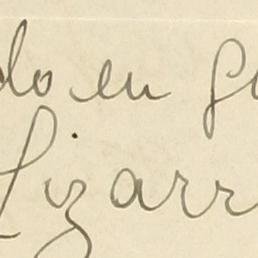 do en
Lizarr